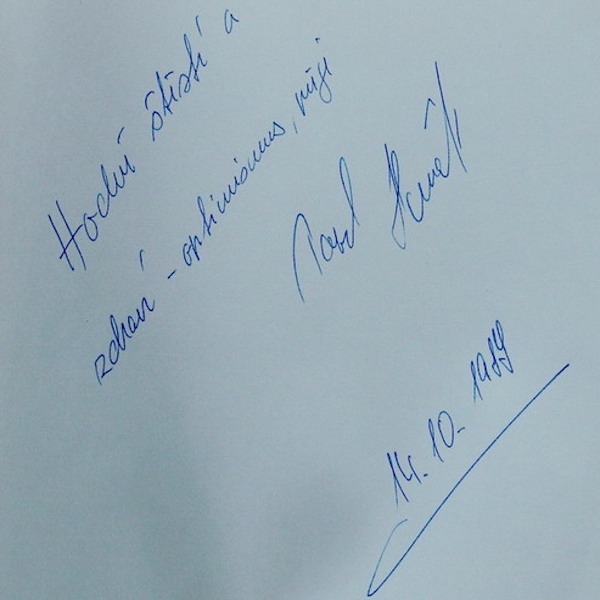 Hodně štěstí a
zdraví - optimismus, přeji
Pavel
14. 10. 1989